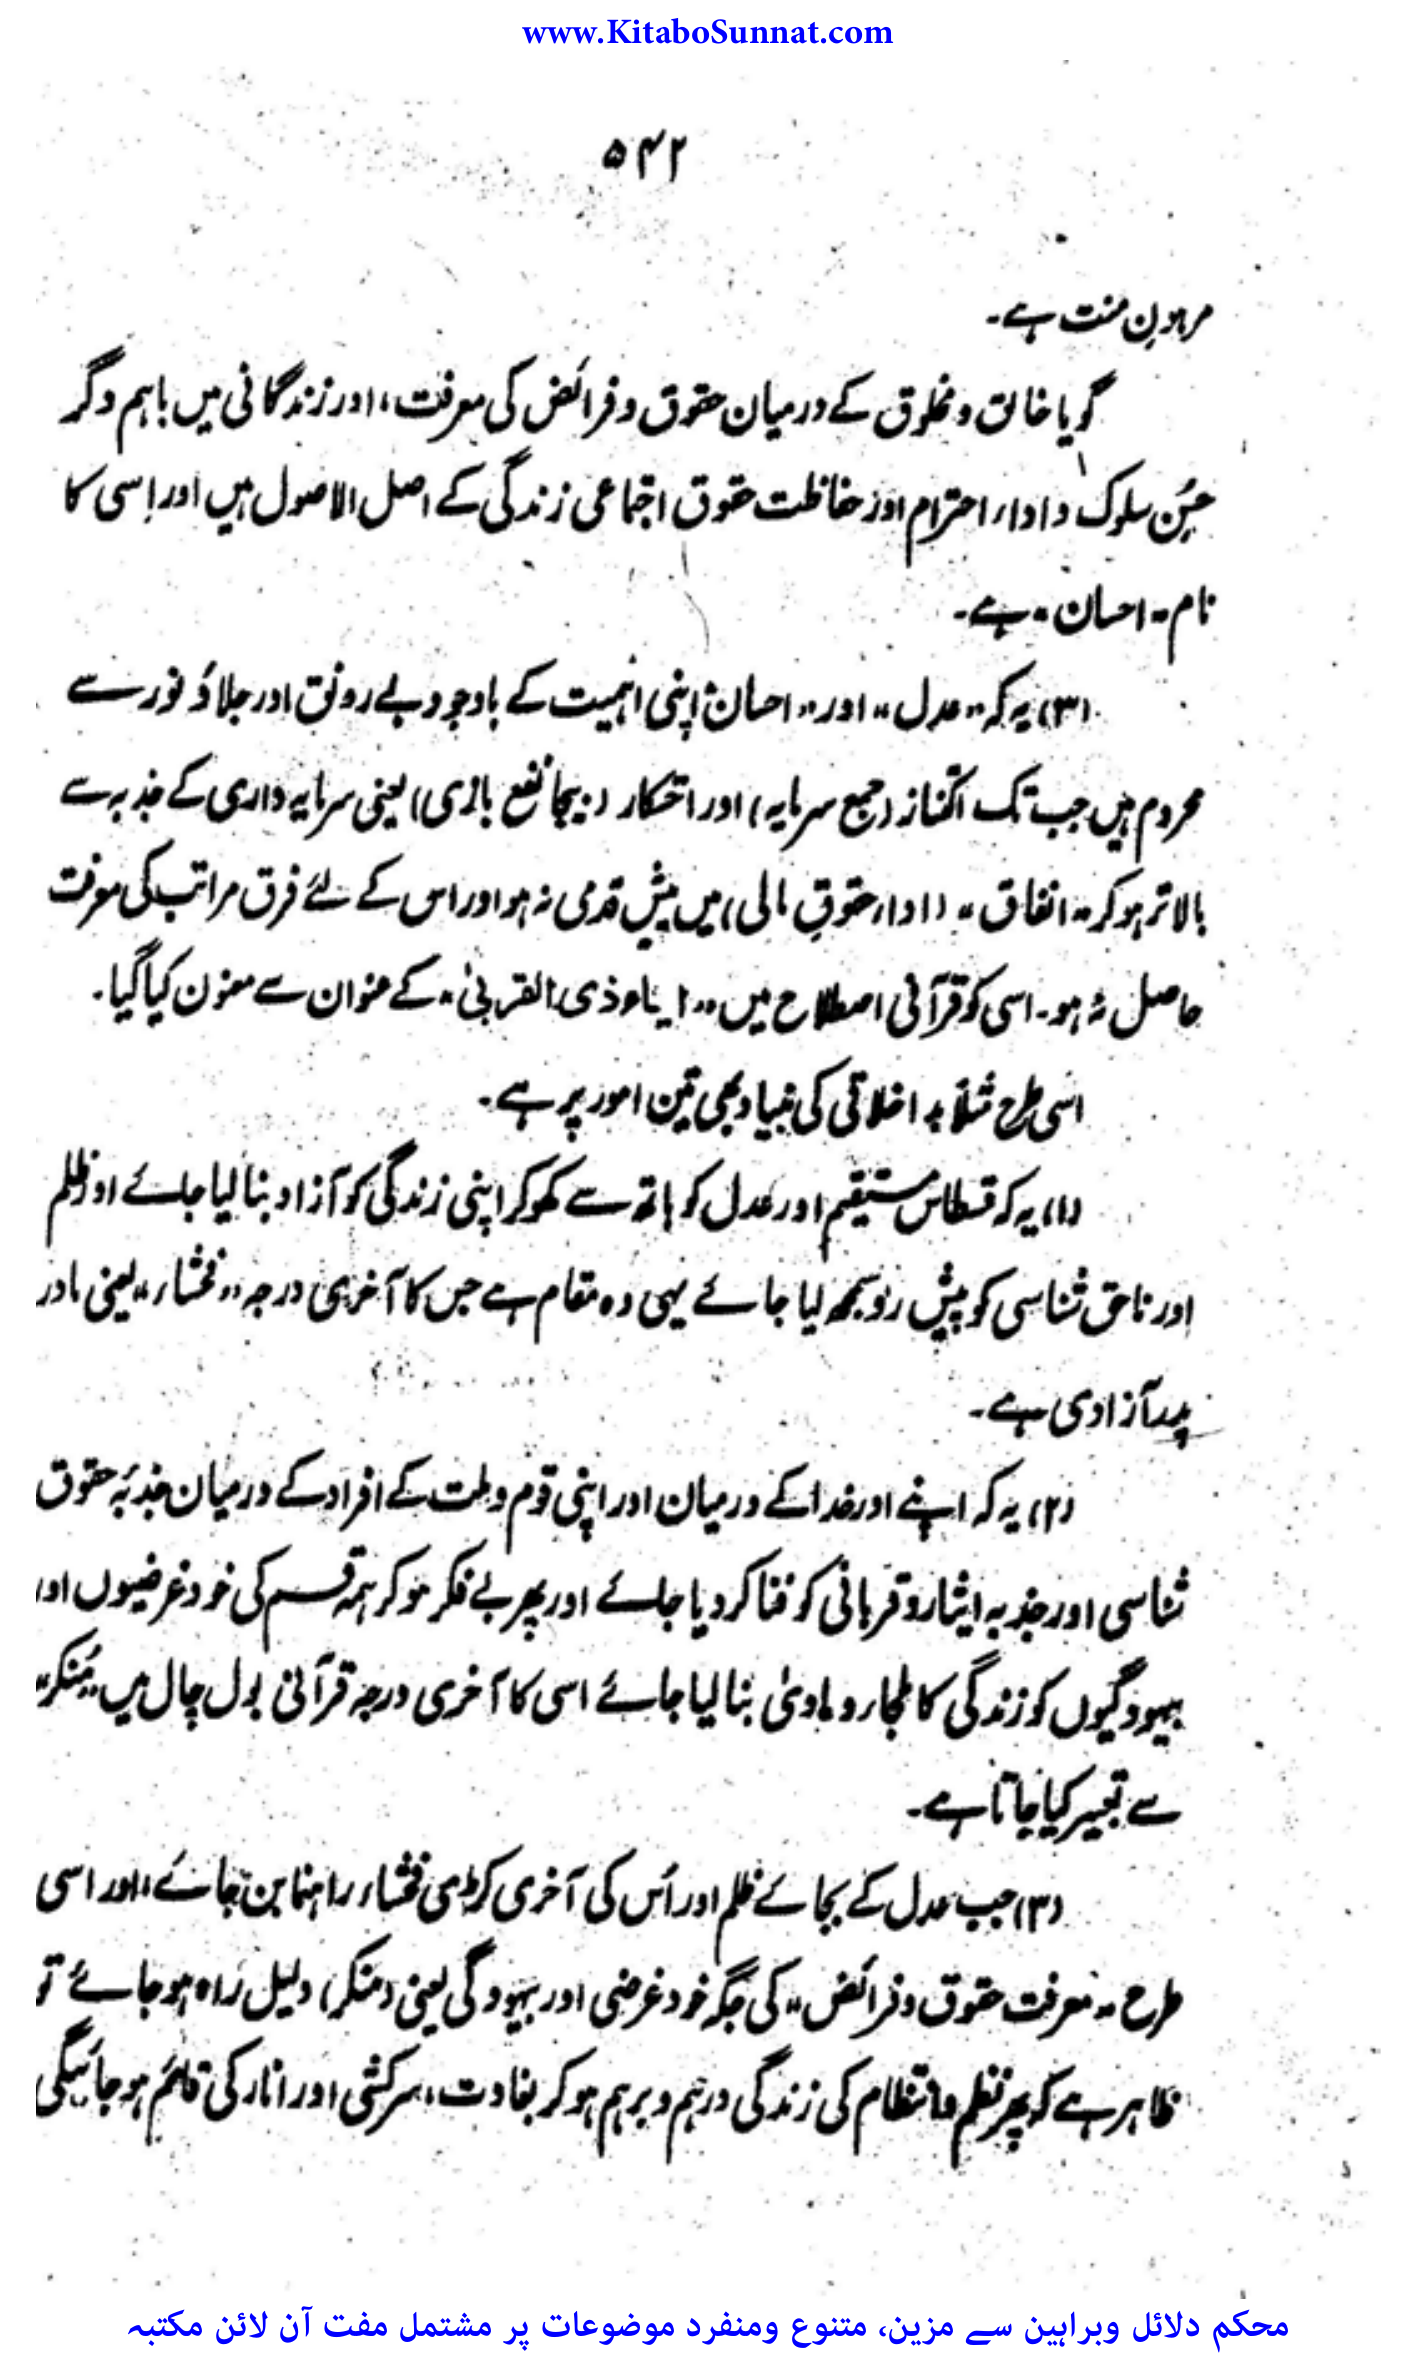 www.KitaboSunnat.com
۵۴۲
مرہونِ منت ہے۔
گویا خالق و مخلوق کے درمیان حقوق و فرائض کی معرفت، اور زندگانی میں باہم دگر
حسُنِ سلوک و اداء احترام اور حفاظت حقوق اجتماعی زندگی کے اصل الاصول ہیں اور اِسی کا
نام "احسان" ہے۔
(۳) یہ کہ "عدل" اور "احسان" اپنی اہمیت کے باوجود بے رونق اور جلاؤ نور سے
محروم ہیں جب تک اکتناز (جمع سرمایہ) اور احتکار (بیجا نفع بازی) یعنی سرمایہ داری کے جذبہ سے
بالاتر ہو کر "انفاق" (اداء حقوقِ مالی) میں پیش قدمی نہ ہو اور اس کے لئے فرق مراتب کی معرفت
حاصل نہ ہو۔ اسی کو قرآنی اصطلاح میں "ایتاء ذی القربیٰ" کے عنوان سے معنون کیا گیا۔
اسی طرح مثلاً بد اخلاقی کی بنیاد بھی تین امور پر ہے۔
(۱) یہ کہ قسطاس مستقیم اور عدل کو ہاتھ سے کھو کر اپنی زندگی کو آزاد بنا لیا جائے اور ظلم
اور ناحق شناسی کو پیش رَو سمجھ لیا جائے یہی وہ مقام ہے جس کا آخری درجہ "فحشاء" یعنی مادر
پدر آزادی ہے۔
(۲) یہ کہ اپنے اور خدا کے درمیان اور اپنی قوم و ملت کے افراد کے درمیان جذبۂ حقوق
شناسی اور جذبہ ایثار و قربانی کو فنا کر دیا جائے اور پھر بے فکر ہو کر ہمہ قسم کی خود غرضیوں اور
بیہودگیوں کو زندگی کا ملجا و ماویٰ بنا لیا جائے اسی کا آخری درجہ قرآنی بول چال میں "مُنکر"
سے تعبیر کیا جاتا ہے۔
(۳) جب عدل کے بجائے ظلم اور اُس کی آخری کڑی فحشاء راہنما بن جائے، اور اسی
طرح "معرفت حقوق و فرائض" کی جگہ خود غرضی اور بیہودگی یعنی (منکر) دلیل راہ ہو جائے تو
ظاہر ہے کہ پھر نظم و انتظام کی زندگی درہم و برہم ہو کر بغاوت، سرکشی اور انارکی قائم ہو جائیگی
محکم دلائل وبراہین سے مزین، متنوع ومنفرد موضوعات پر مشتمل مفت آن لائن مکتبہ